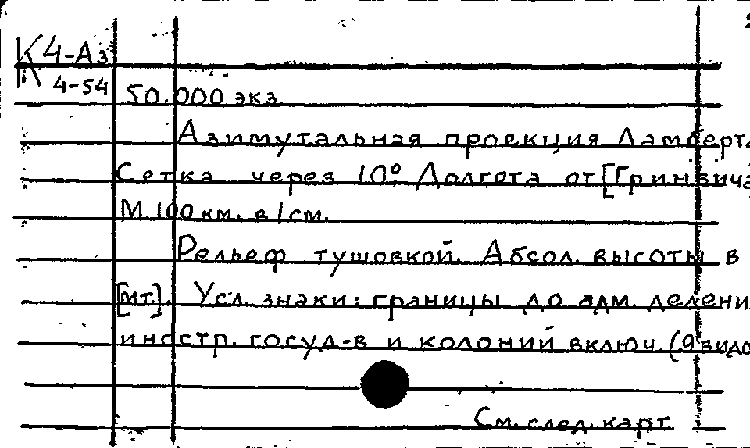 К4-Аз
4-54
50.000 экз.
Азимутальная проекция Ламберта
Сетка через 10° Долгота от [Гринвича
М 100 км. в 1 см.
Рельеф тушовкой. Абсол. высоты в
[мт]. Усл. знаки: границы до адм. делени
иностр. госуд-в и колоний включ. (9 видо
См. след. карт